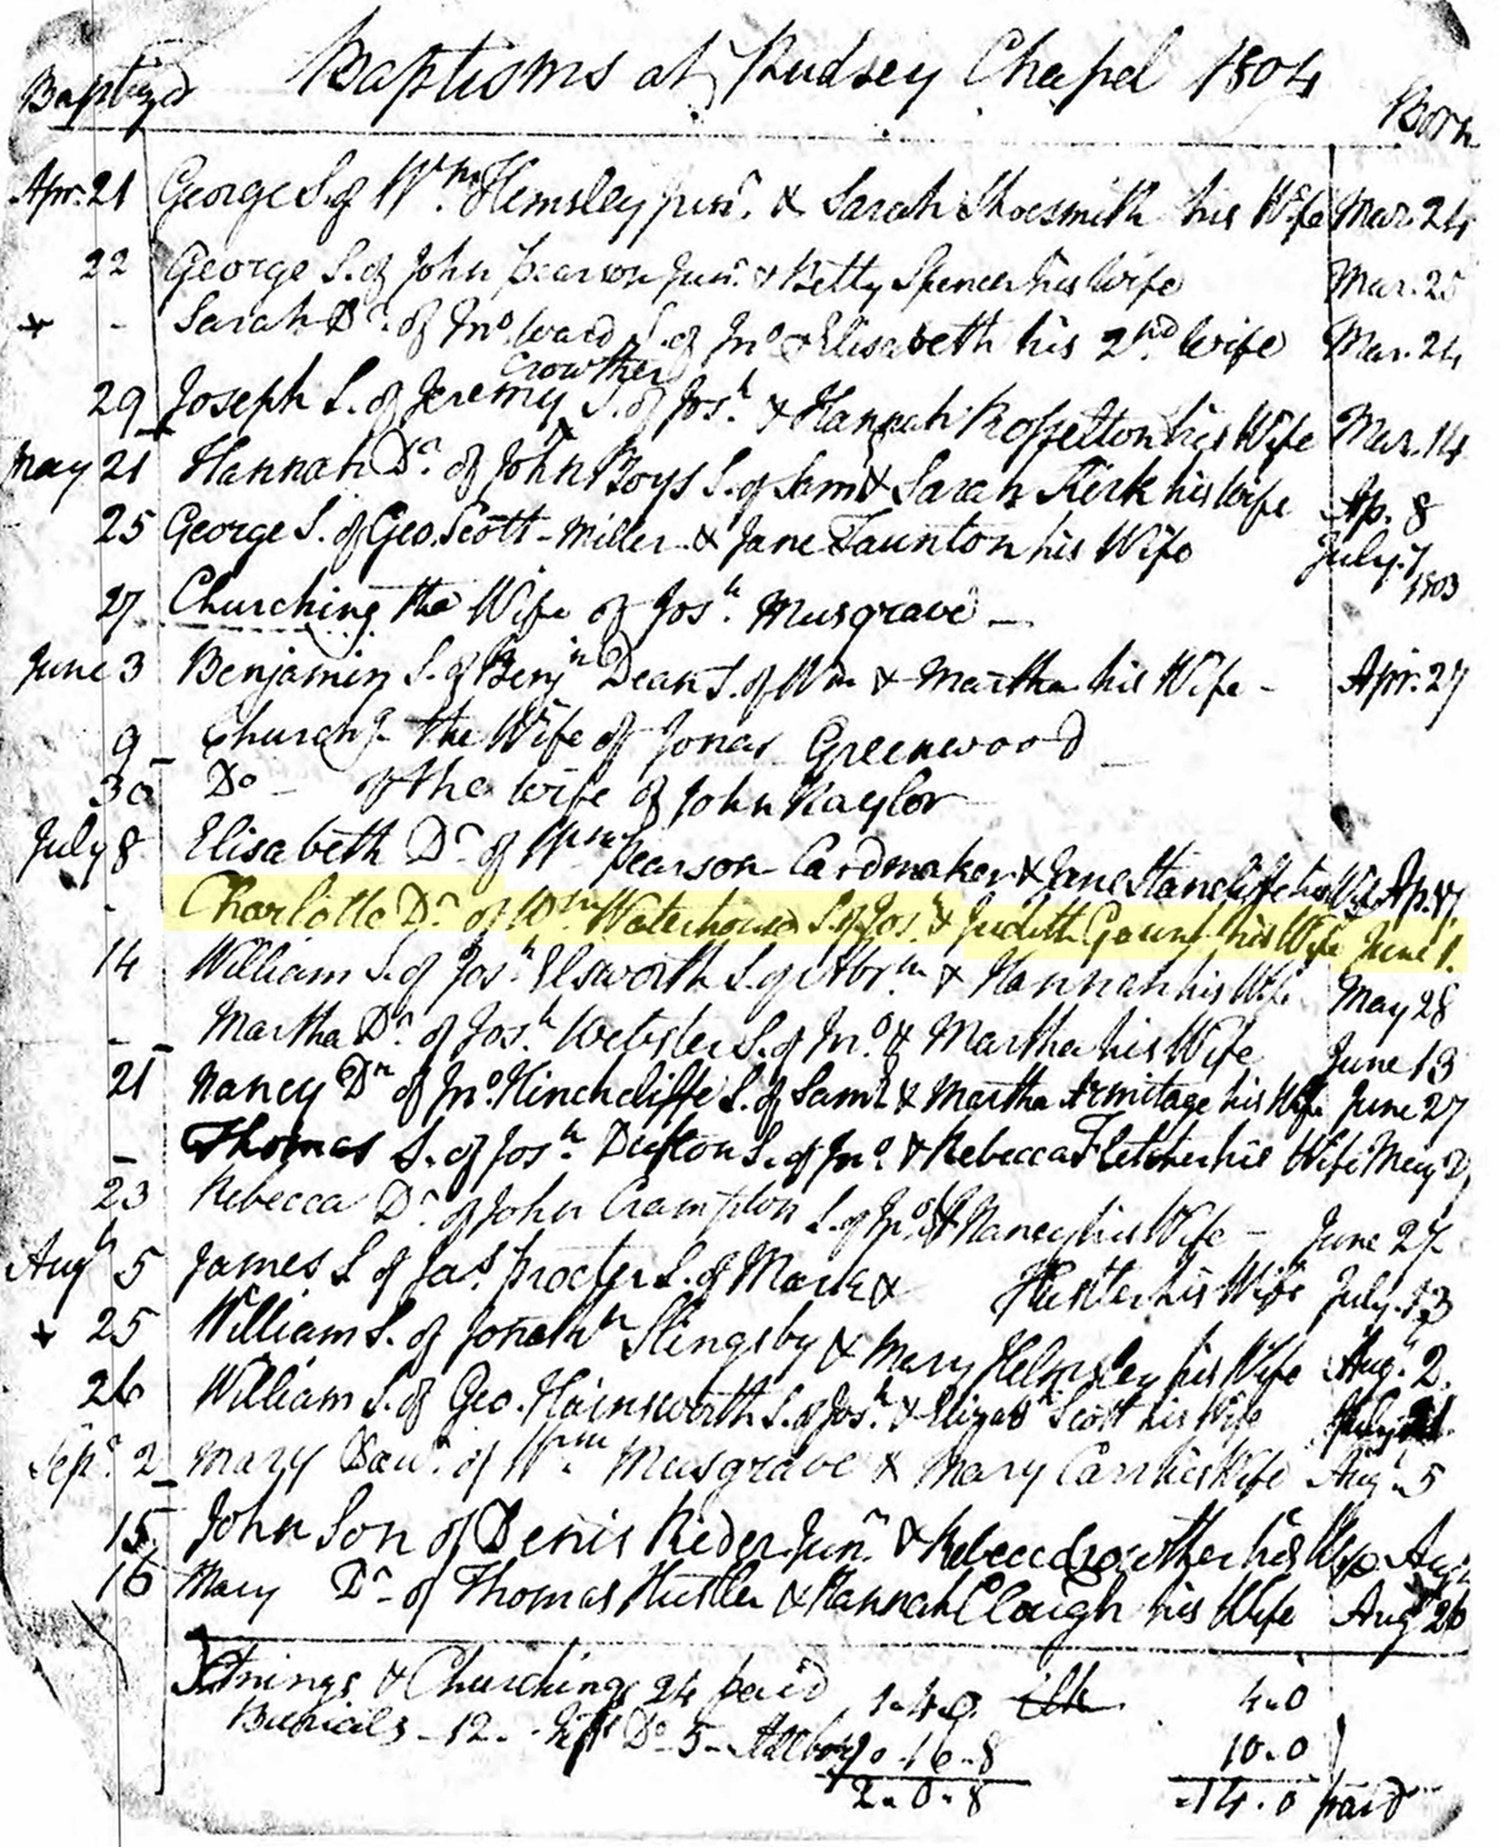 Baptisms at Pudsey Chapel 1804
Baptizd Born
Apr. 21 George S. of Wm. Hemsley junr. & Sarah Shoesmith his Wife Mar. 24
22 George S. of John Pearson Junr. & Betty Spencer his Wife Mar. 25
- Sarah Dr. of Jno Ward S. of Jno & Elisabeth his 2nd Wife Mar. 24
Crowther
29 Joseph S. of Jeremy S. of Josh. & Hannah Rosselton his Wife Mar. 14
May 21 Hannah Dr. of John Boys S. of Saml & Sarah Kirk his Wife Ap. 8
25 George S. of Geo. Scott - Miller & Jane Taunton his Wife July 7
1803
27 Churching the Wife of Josh. Musgrave -
June 3 Benjamin S. of Benjn Dean S. of Wm & Martha his Wife - Apr. 27
9 Churchg the Wife of Jonas Greenwood
30 Do - of the Wife of John Naylor
July 8 Elisabeth Dr. of Wm Pearson Cardmaker & Jane Stancliffe his Wife Ap. 17
- Charlotte Dr. of Wm. Waterhouse S. of Jos. & Judith Gaunt his Wife June 1.
14 William S. of Josh Elsworth S. of Abrm & Hannah his Wife May 28
- Martha Dr. of Josh. Webster S. of Jno. & Martha his Wife June 13
21 Nancy Dr of Jno. Hinchcliffe S. of Saml & Martha Armitage his Wife June 27
- Thomas S. of Josh. Dufton S. of Jno. & Rebecca Fletcher his Wife May
23 Rebecca Dr. of John Crampton S. of Jno & Nancy his Wife - June 27
Augt 5 James S. of Jas. Procter S. of Mark & Hustler his Wife July 13
25 William S. of Jonathn Slingsby & Mary Helmsley his Wife Aug. 2.
26 William S. of Geo. Hainsworth S. of Josh. & Elizabh Scott his Wife July
Sepr. 2 Mary Daur. of Wm. Musgrave & Mary Carr his Wife Augt. 5
15 John Son of Denis Rider Junr. & Rebecca Crowther his Wife Aug
16 Mary Dr. of Thomas Hustler & Hannah Clough his Wife Augt 26
Xtnings & Churchings 24 paid 1.4.0 4.0
Burials - 12. Do 5 - 0.16.8 10.0
2.0.8 14.0 paid